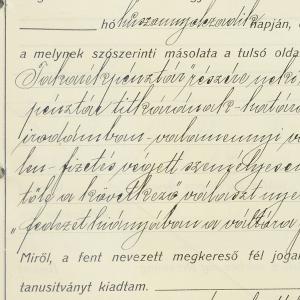 hó huszonnyolczadik napján,
a melynek szószerinti másolata a tulsó olda
Takarékpénztár" részére
pénztár titkárának - határ
irodámban - valamennyi vá
len - fizetés végett személyesen
tőle a következő választ nyer
"fedezet hiányjában a váltóra
Miről, a fent nevezett megkereső fél joga
tanusítványt kiadtam.